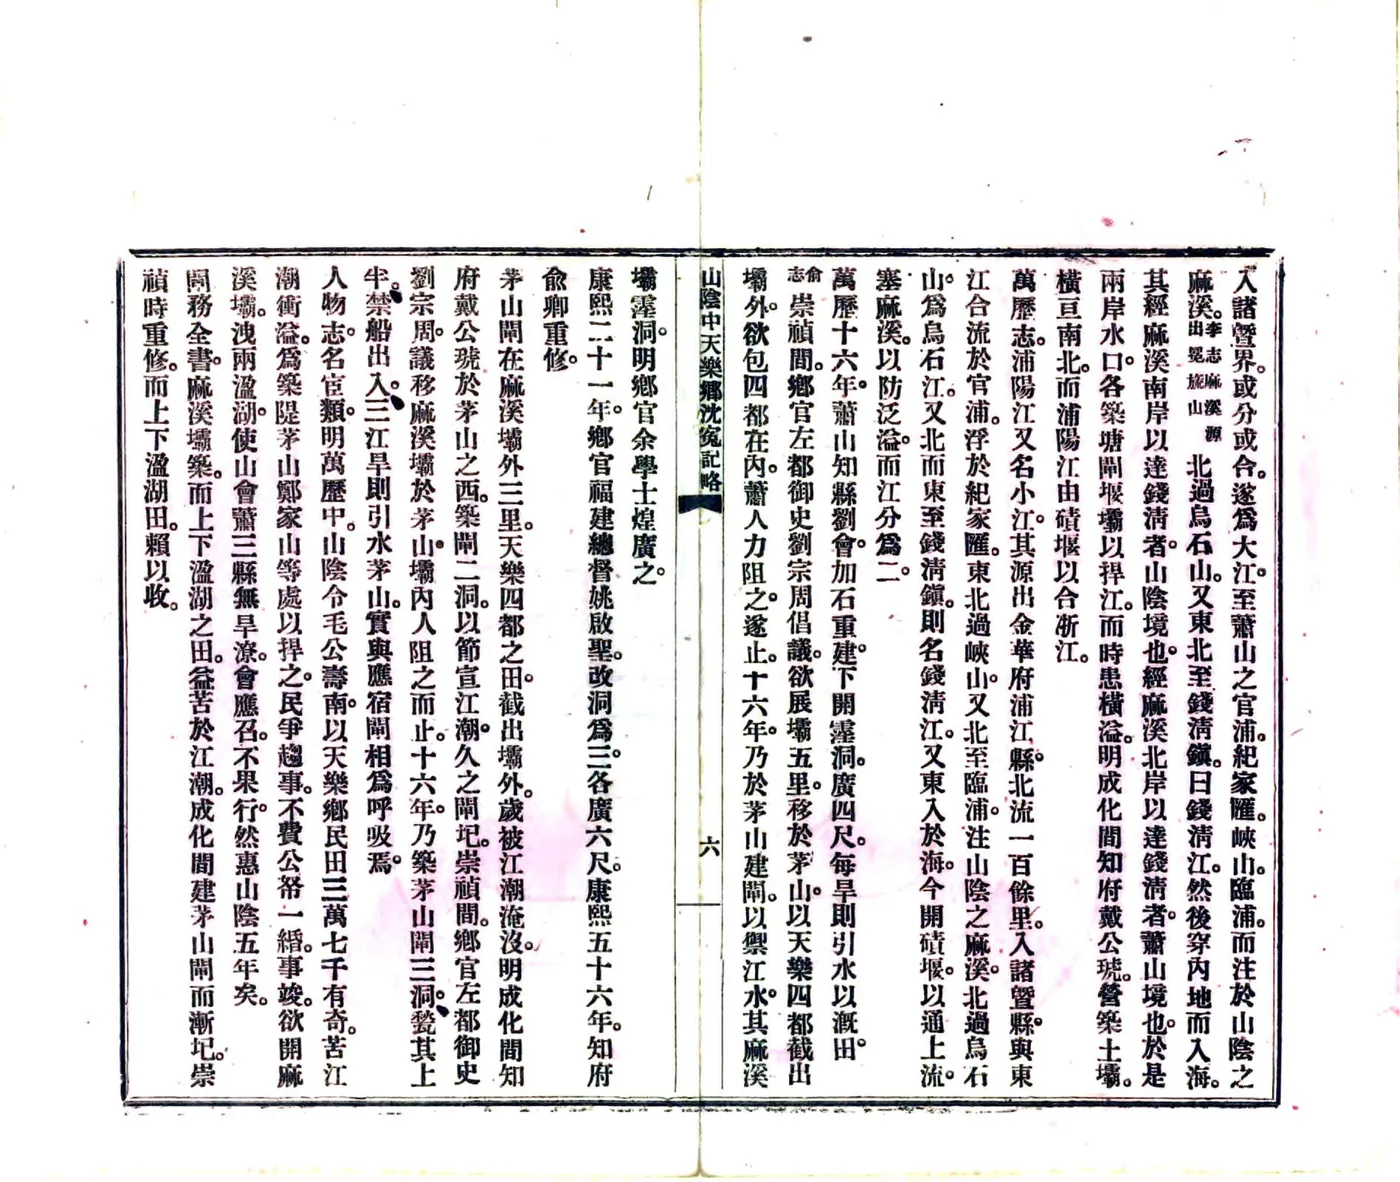 入諸暨界。或分或合。遂爲大江。至蕭山之官浦。紀家匯。峽山。臨浦。而注於山陰之
麻溪。李志麻溪源出冕旅山北過烏石山。又東北至錢淸鎭。曰錢淸江。然後穿內地而入海。
其經麻溪南岸以達錢淸者。山陰境也。經麻溪北岸以達錢淸者。蕭山境也。於是
兩岸水口。各築塘閘堰壩以捍江。而時患橫溢。明成化間知府戴公琥。營築土壩。
橫亘南北。而浦陽江由磧堰以合浙江。
萬歷志。浦陽江又名小江。其源出金華府浦江縣。北流一百餘里。入諸暨縣。與東
江合流於官浦。浮於紀家匯。東北過峽山。又北至臨浦。注山陰之麻溪。北過烏石
山。爲烏石江。又北而東至錢淸鎭。則名錢淸江。又東入於海。今開磧堰。以通上流。
塞麻溪。以防泛溢。而江分爲二。
萬歷十六年。蕭山知縣劉會。加石重建。下開霪洞。廣四尺。每旱則引水以漑田。
俞志崇禎間。鄕官左都御史劉宗周倡議。欲展壩五里。移於茅山。以天樂四都截出
壩外。欲包四都在內。蕭人力阻之。遂止。十六年。乃於茅山建閘。以禦江水。其麻溪
山陰中天樂鄕沈寃記略
六
壩霪洞。明鄕官余學士煌廣之。
康熙二十一年。鄕官福建總督姚啟聖。改洞爲三。各廣六尺。康熙五十六年。知府
兪卿重修。
茅山閘在麻溪壩外三里。天樂四都之田。截出壩外。歲被江潮淹沒。明成化間知
府戴公琥於茅山之西。築閘二洞。以節宣江潮。久之閘圮。崇禎間。鄕官左都御史
劉宗周。議移麻溪壩於茅山。壩內人阻之而止。十六年。乃築茅山閘三洞。甃其上
半。禁船出入。三江旱則引水茅山。實與應宿閘相爲呼吸焉。
人物志。名宦類。明萬歷中。山陰令毛公壽南。以天樂鄕民田三萬七千有奇。苦江
潮衝溢。爲築隄茅山鄭家山等處以捍之。民爭趨事。不費公帑一緡。事竣。欲開麻
溪壩。洩兩溋湖。使山會蕭三縣無旱潦。會應召。不果行。然惠山陰五年矣。
閘務全書。麻溪壩築。而上下溋湖之田。益苦於江潮。成化間建茅山閘而漸圮。崇
禎時重修。而上下溋湖田。賴以收。